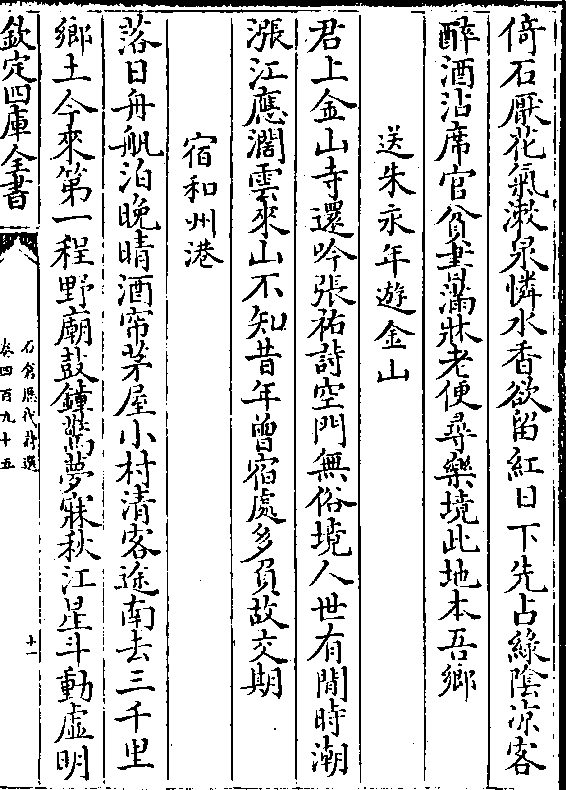 倚石厭花氣漱泉憐水香欲留紅日下先占綠陰涼客
醉酒沾席官貧書滿牀老便尋樂境此地本吾鄉
送朱永年遊金山
君上金山寺還吟張祐詩空門無俗境人世有閒時潮
漲江應濶雲來山不知昔年曾宿處多負故交期
宿和州港
落日舟帆泊晚晴酒帘茅屋小村清客途南去三千里
鄉土今來第一程野廟鼓鐘驚夢寐秋江星斗動虛明
欽定四庫全書
石倉歷代詩選
卷四百九十五
十一